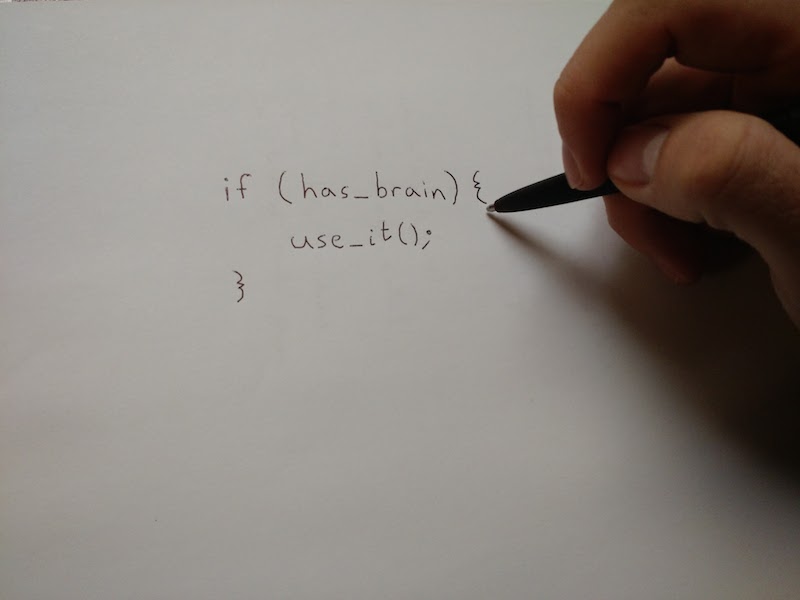 if (has_brain) {
use_it();
}